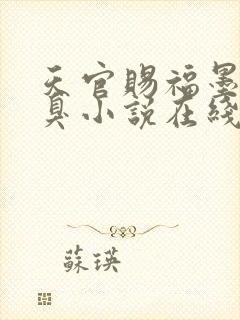 天官賜福墨
臭小說在綫
蘇瑛